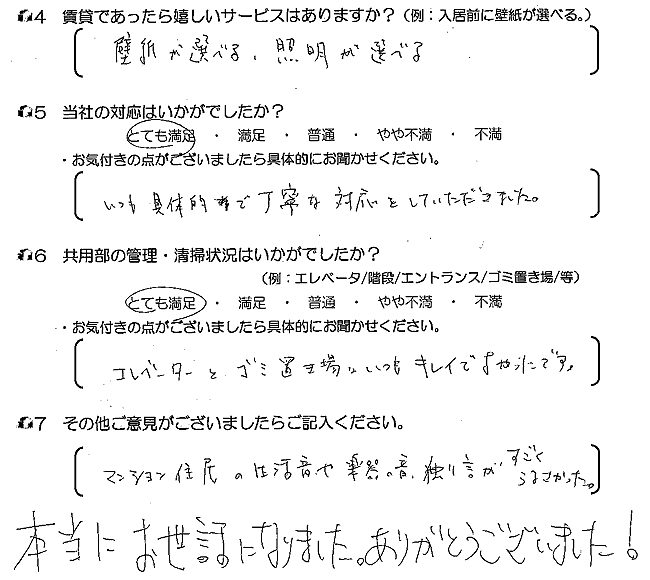 Q4 賃貸であったら嬉しいサービスはありますか？（例：入居前に壁紙が選べる。）
壁紙が選べる、照明が選べる
Q5 当社の対応はいかがでしたか？
とても満足 ・ 満足 ・ 普通 ・ やや不満 ・ 不満
・お気付きの点がございましたら具体的にお聞かせください。
いつも具体的で丁寧な対応をしていただきました。
Q6 共用部の管理・清掃状況はいかがでしたか？
（例：エレベータ/階段/エントランス/ゴミ置き場/等）
とても満足 ・ 満足 ・ 普通 ・ やや不満 ・ 不満
・お気付きの点がございましたら具体的にお聞かせください。
エレベーターとゴミ置き場はいつもキレイでよかったです。
Q7 その他ご意見がございましたらご記入ください。
マンション住民の生活音や楽器の音、独り言がすごく
うるさかった。
本当にお世話になりました。ありがとうございました！